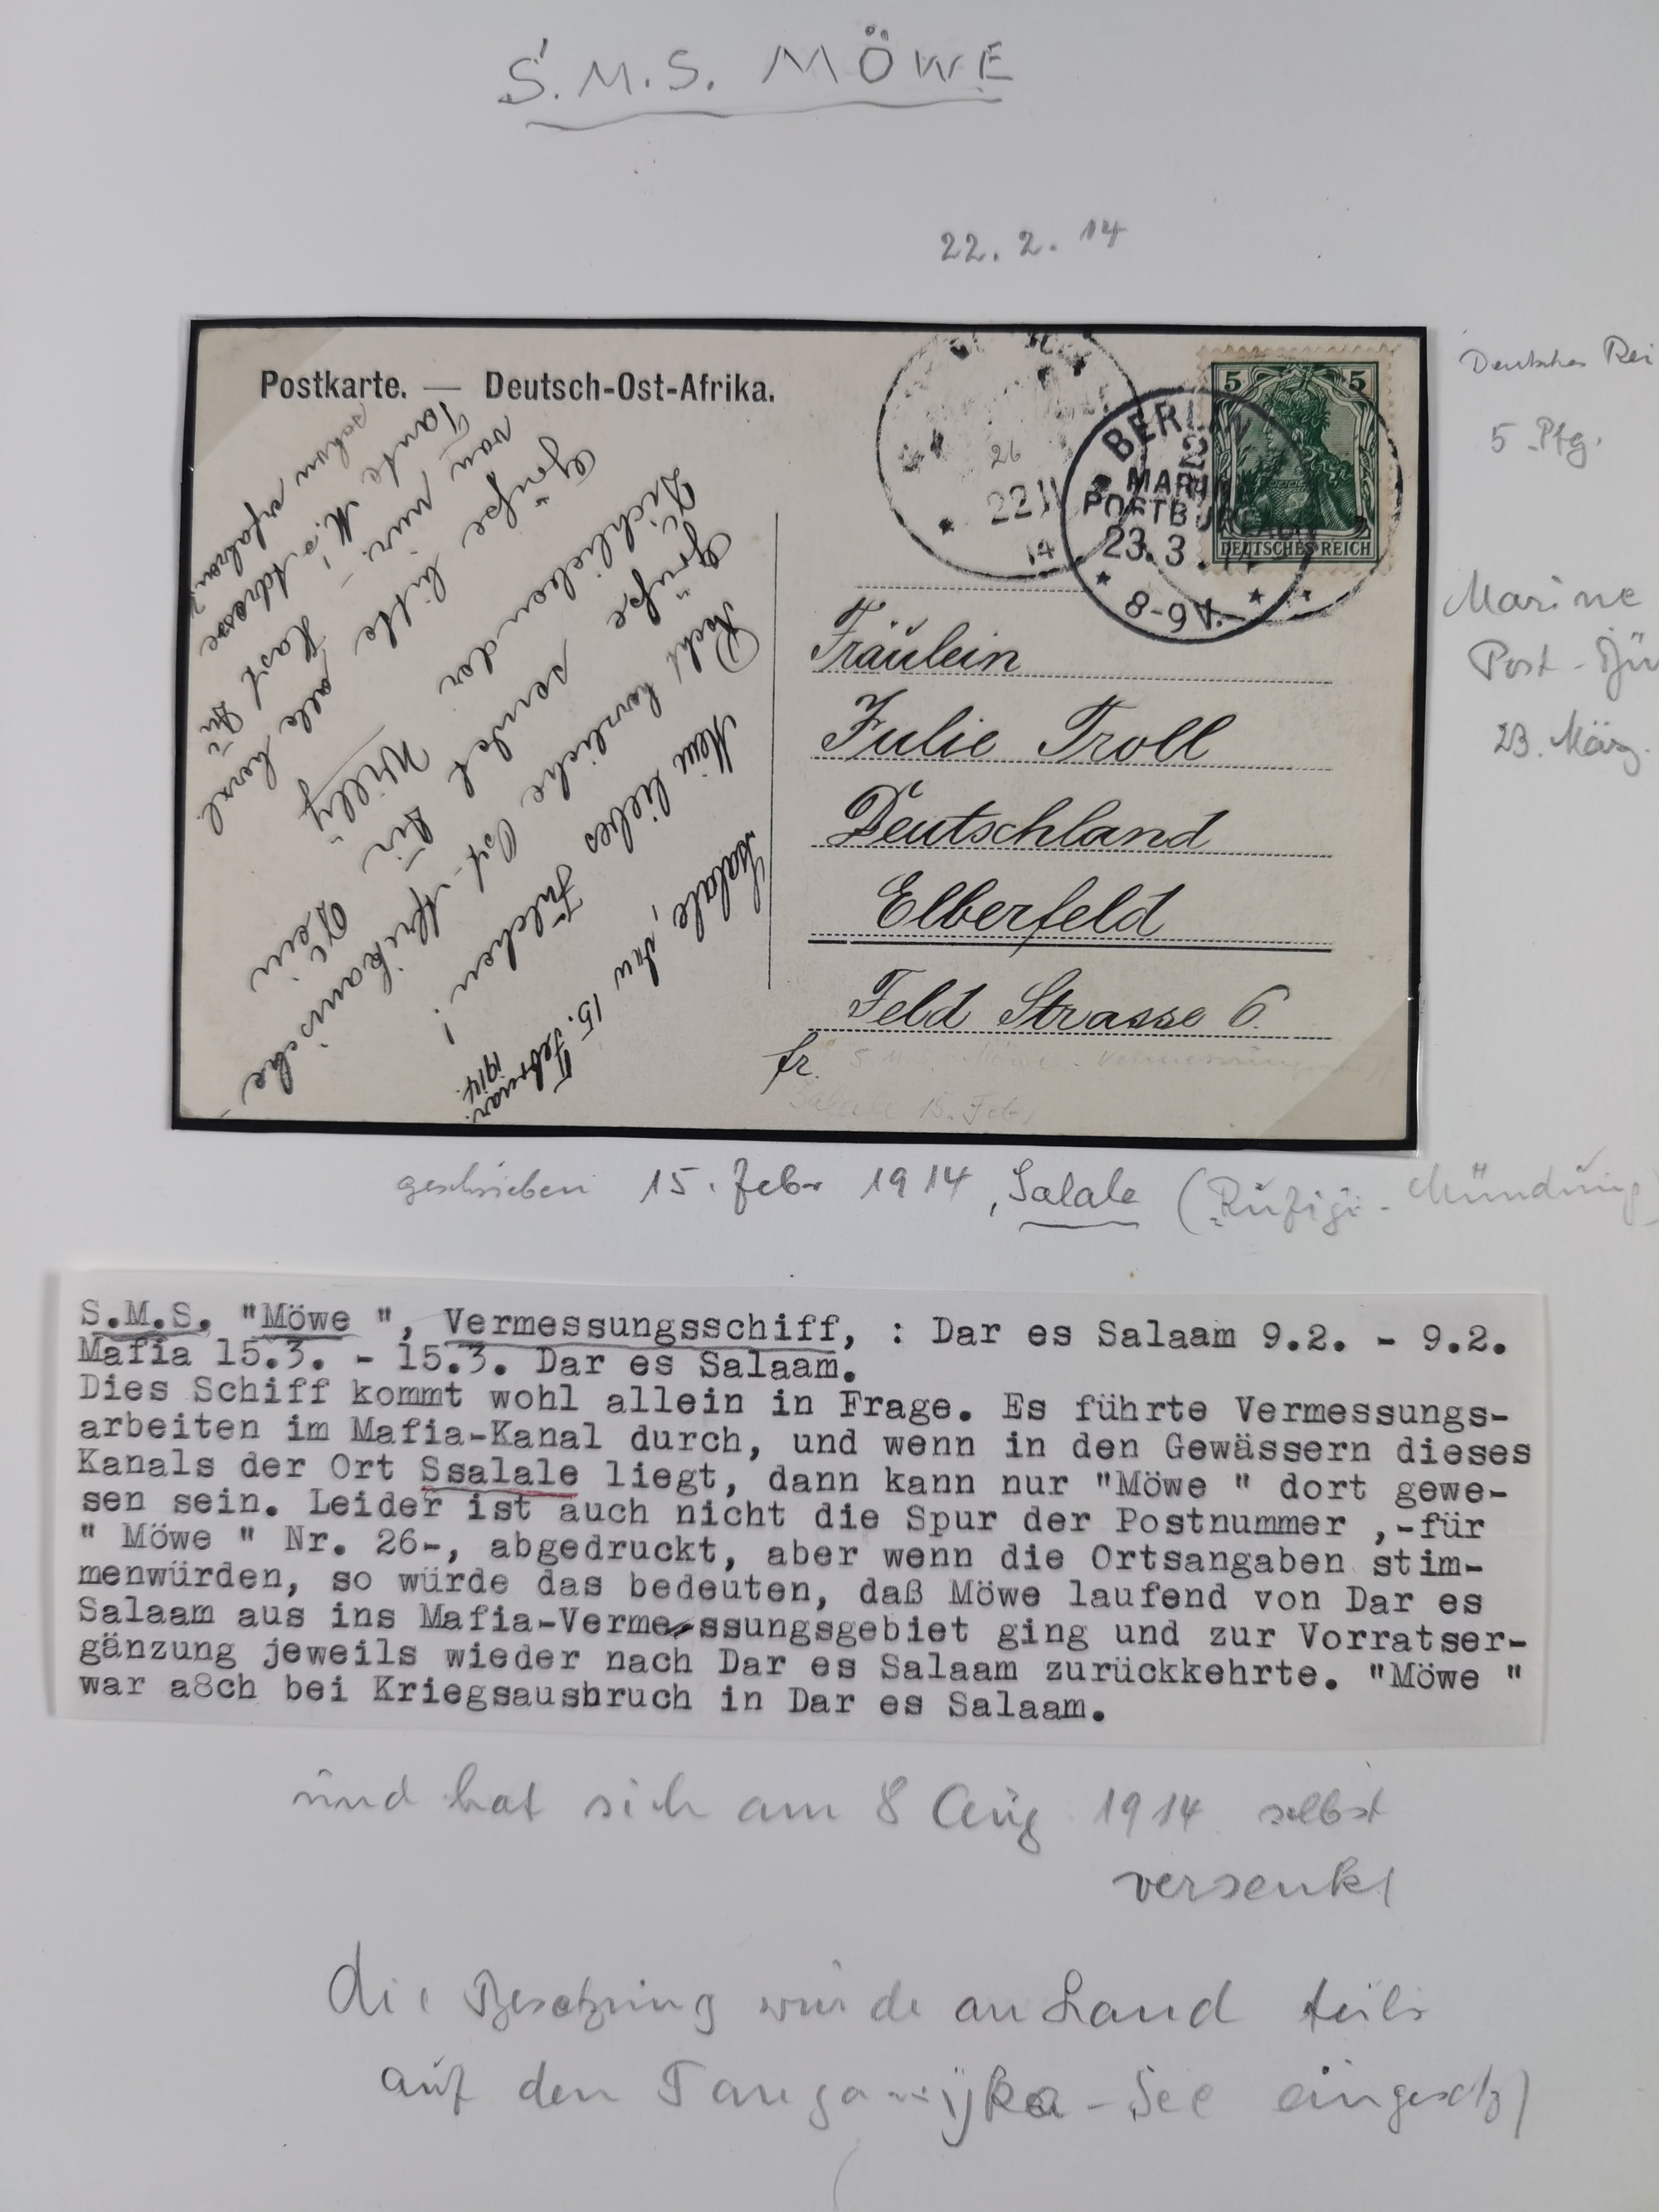 S.M.S. MÖWE
22.2.14
Postkarte. — Deutsch-Ost-Afrika.
26
22
14
BERLIN
MARINE
POSTBUREAU
23. 3.
8-9V.
5 5
DEUTSCHES REICH
Deutsches Rei
5 Pfg.
Marine
Post-Bü
23. März.
Fräulein
Julie Troll
Deutschland
Elberfeld
Feld Strasse 6.
fr.
Salale 15. Feb
Ssalale, den 15. Februar.
1914.
Mein liebes Julchen!
Recht herzliche Ost-Afrikanische
Grüße sendet Dir Dein
Dichliebender Willy
Grüße bitte alle herzl.
von mir. – Hast Du
Tante M's Adresse
schon erfahren?
geschrieben 15. Febr 1914, Salale (Rufiji-Mündung)
S.M.S. "Möwe ", Vermessungsschiff, : Dar es Salaam 9.2. - 9.2.
Mafia 15.3. - 15.3. Dar es Salaam.
Dies Schiff kommt wohl allein in Frage. Es führte Vermessungs-
arbeiten im Mafia-Kanal durch, und wenn in den Gewässern dieses
Kanals der Ort Ssalale liegt, dann kann nur "Möwe " dort gewe-
sen sein. Leider ist auch nicht die Spur der Postnummer ,-für
" Möwe " Nr. 26-, abgedruckt, aber wenn die Ortsangaben stim-
menwürden, so würde das bedeuten, daß Möwe laufend von Dar es
Salaam aus ins Mafia-Vermessungsgebiet ging und zur Vorratser-
gänzung jeweils wieder nach Dar es Salaam zurückkehrte. "Möwe "
war a8ch bei Kriegsausbruch in Dar es Salaam.
und hat sich am 8 Aug 1914 selbst
versenkt
die Besatzung wurde an Land teils
auf den Tanganyka-See eingesetzt